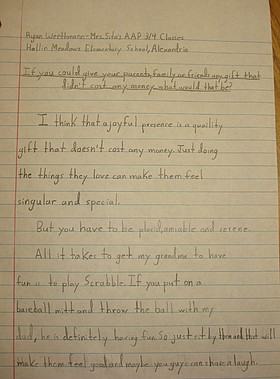 Ryan Werthmann-Mrs. Sita's AAP 3/4 Classes
Hollin Meadows Elementary School, Alexandria
If you could give your parents, family or friends any gift that
didn't cost any money what would that be?
I think that a joyful presence is a quaility
gift that doesn't cost any money. Just doing
the things they love can make them feel
singular and special.
But you have to be placid, amiable and serene.
All it takes to get my grandma to have
fun is to play Scrabble. If you put on a
baseball mitt and throw the ball with my
dad, he is definitely having fun. So just sit by them and that will
make them feel good and maybe you guys can share a laugh.